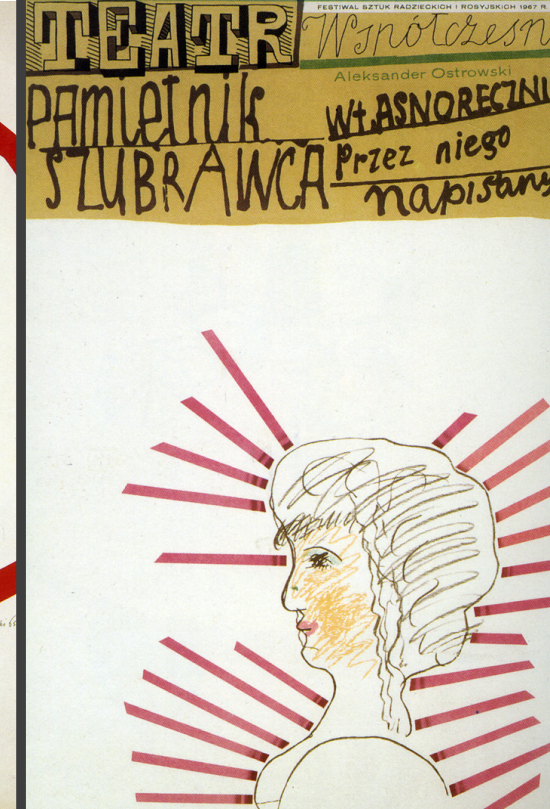 FESTIWAL SZTUK RADZIECKICH I ROSYJSKICH 1967 R.
TEATR
Współczesn
Aleksander Ostrowski
Pamiętnik
SZUBRAWCA
WŁASNORĘCZNI
Przez niego
napisany